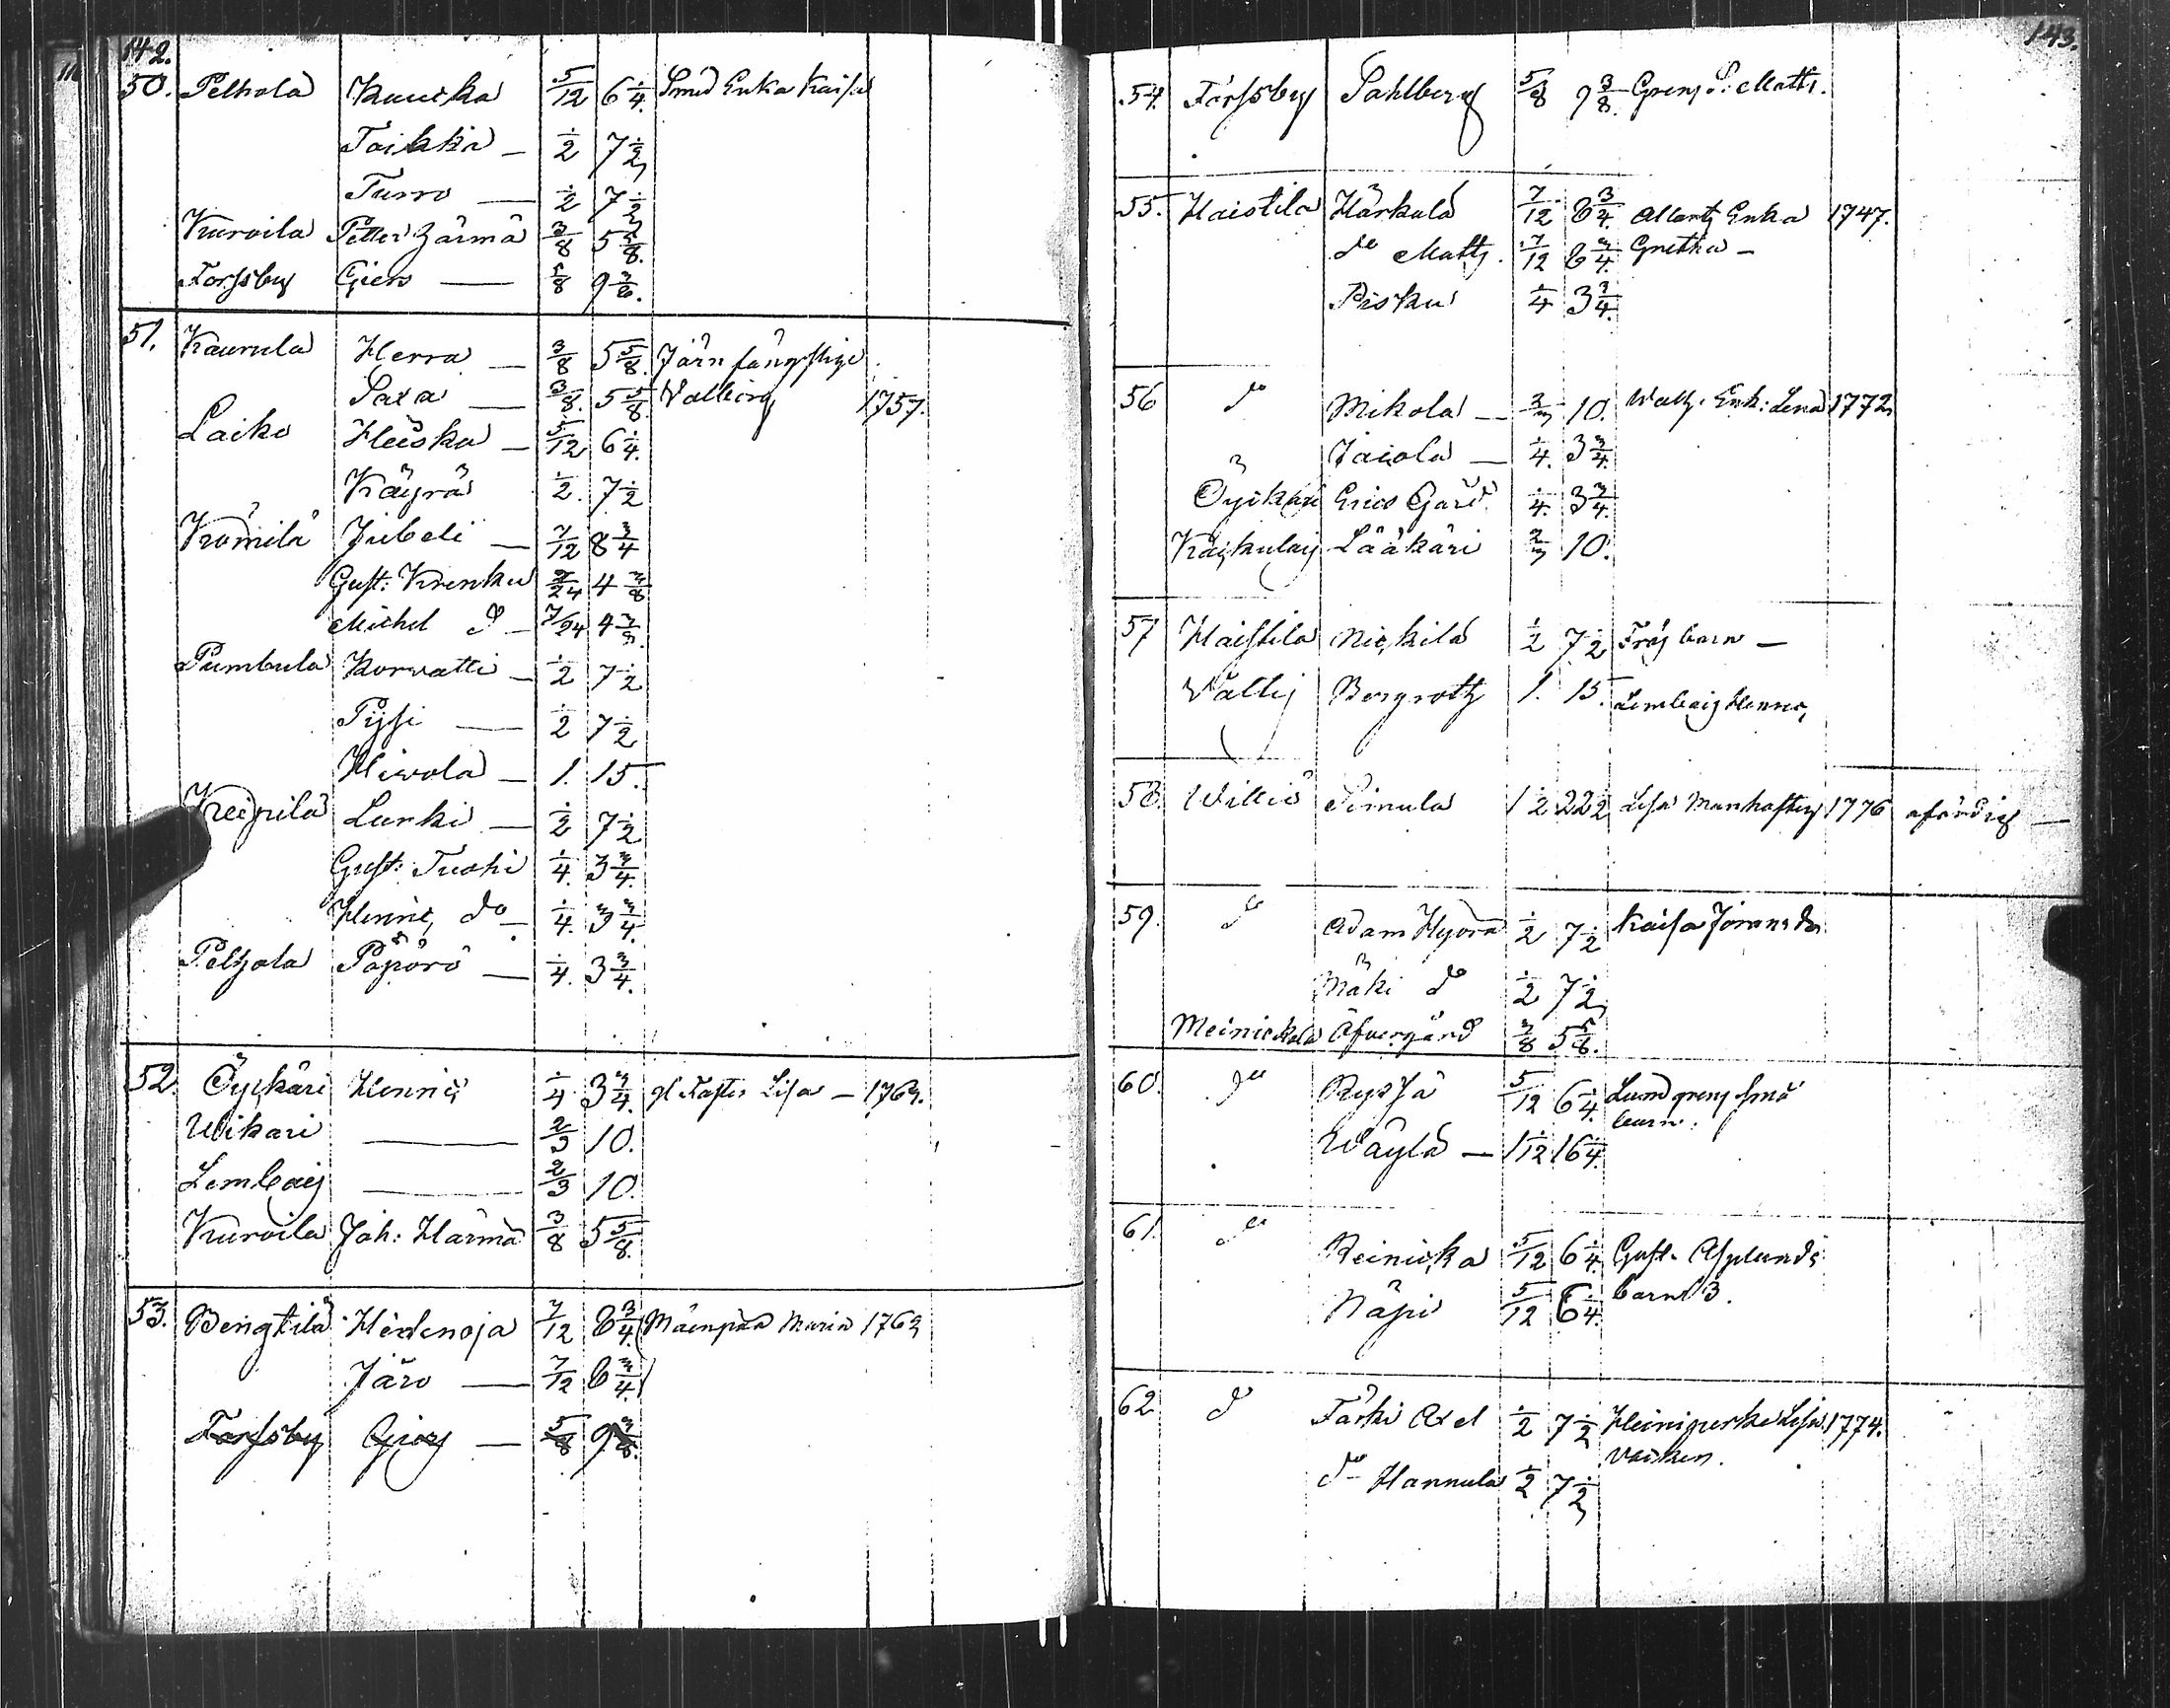 142.
50. Peltola Kauska 5/12 6 1/4. Smed Enka Kaisa
Toikka — 1/2 7 1/2
Turro — 1/2 7 1/2
Kurvila Petter Härmä 3/8 5 5/8.
Forssby Giers — 5/8 9 3/8.
51. Kaurula Herra — 3/8 5 5/8.
Saxa — 3/8. 5 5/8. Walborg 1757.
Laiko Heiska — 5/12 6 1/4.
Käyrä 1/2. 7 1/2
Krömilä Jubeli — 7/12 8 3/4
Gust: Krenku 7/24 4 3/8
Michel do — 7/24 4 3/8.
Pumbula Korvatti — 1/2 7 1/2
Pijsi — 1/2 7 1/2
Hirvola — 1. 15.
Kreipilä Lurki — 1/2 7 1/2
Gust: Tuohi 1/4. 3 3/4.
Henric, do — 1/4. 3 3/4.
Peltola Pápörö — 1/4. 3 3/4.
52. Öyckäri Henric 1/4 3 3/4. Lisa — 1763.
Wikari — 2/3 10.
Lembois — 2/3 10.
Kurvila Joh: Härmä 3/8 5 5/8.
53. Bengtilä Hidenoja 7/12 8 3/4. Mäenpää Maria 1763
Järo — 7/12 8 3/4.
Forssby Giers — 5/8 9 3/8.
143.
54. Forssby Sahlberg 5/8 9 3/8. Matts.
55. Haistila Härkälä 7/12 8 3/4. Enka 1747.
do Matts. 7/12 8 3/4. Gretha —
Pisku 1/4 3 3/4.
56 do Mikola — 2/3 10. Enk: Lena 1772
Jaiola — 1/4. 3 3/4.
Öyckäri Erics Gård 1/4. 3 3/4.
Lääkäri 2/3 10.
57 Haistila Nickilä 1/2 7 1/2 barn —
Wallis Bergroth 1. 15. Lembois Henric,
58. Willio Simula 1 1/2 22 1/2 Lisa Manhaftig 1776 ofärdig —
59. do Adam Hyörä 1/2 7 1/2 Kaisa Jörans dr
Mäki do 1/2 7 1/2
Meinickala Öfvergård 3/8 5 5/8.
60. do 5/12 6 1/4. Lundgrens små
barn.
Wäylä — 1 1/12 16 1/4.
61. do Reinicka 5/12 6 1/4. Gust. Asplunds
Näpi 5/12 6 1/4. barn 3.
62. do Tärki Axel 1/2 7 1/2 Lisa 1774.
do Hannula 1/2 7 1/2